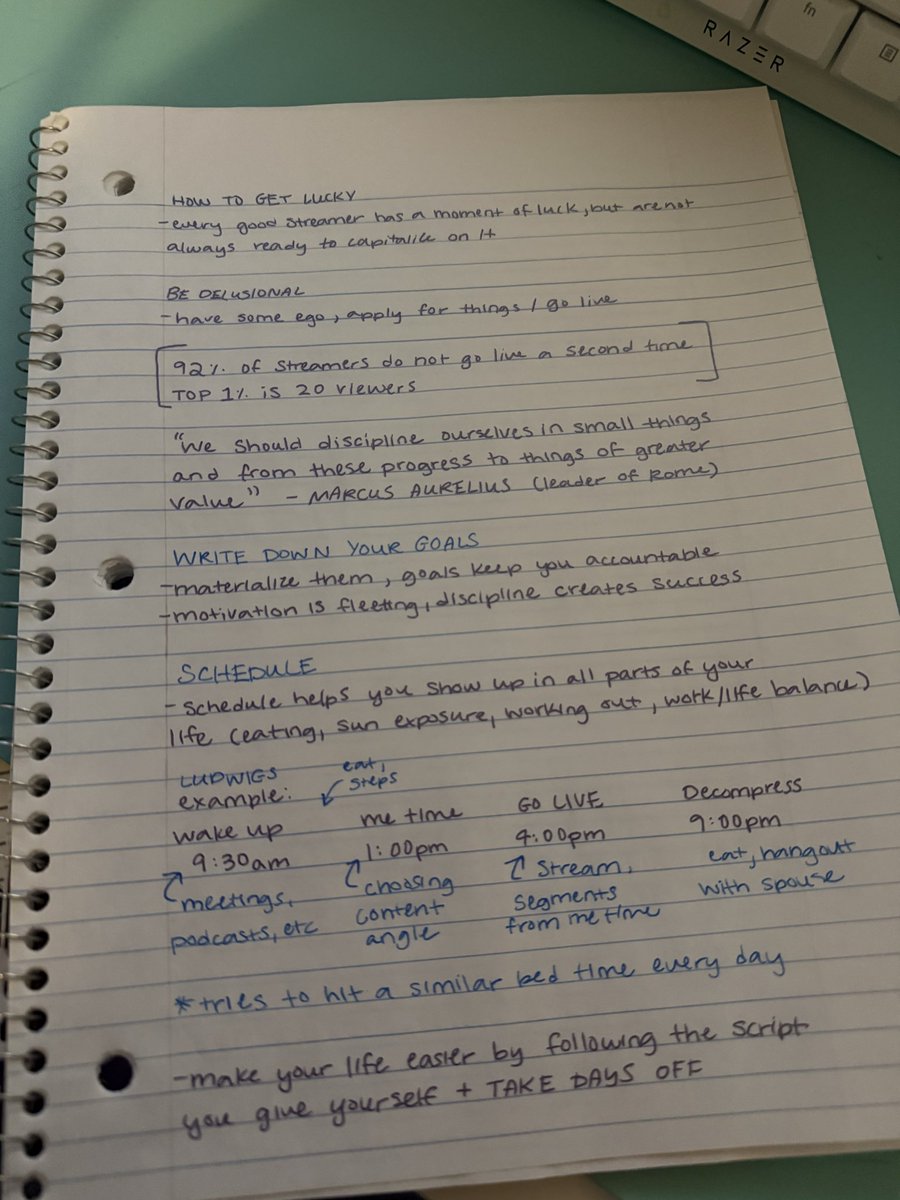 fn
RAZER
HOW TO GET LUCKY
-every good streamer has a moment of luck, but are not
always ready to capitalice on it
BE DELUSIONAL
-have some ego, apply for things / go live
92% of streamers do not go live a second time
TOP 1% is 20 viewers
"We should discipline ourselves in small things
and from these progress to things of greater
value" - MARCUS AURELIUS (leader of Rome)
WRITE DOWN YOUR GOALS
-materialize them, goals keep you accountable
-motivation is fleeting, discipline creates success
SCHEDULE
- Schedule helps you show up in all parts of your
life (eating, sun exposure, working out, work/life balance)
LUDWIGS
example:
eat,
steps
wake up me time GO LIVE Decompress
9:30am 1:00pm 4:00pm 9:00pm
meetings, choosing stream, eat, hangout
podcasts, etc content segments with spouse
angle from me time
*tries to hit a similar bed time every day
-make your life easier by following the script
you give yourself + TAKE DAYS OFF